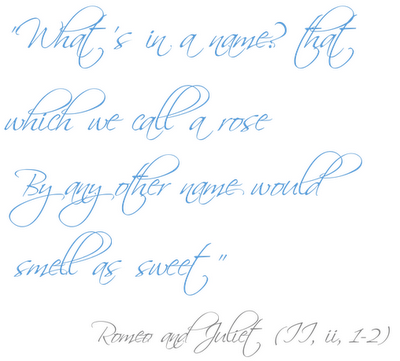 "What's in a name? that
which we call a rose
By any other name would
smell as sweet"
Romeo and Juliet (II, ii, 1-2)